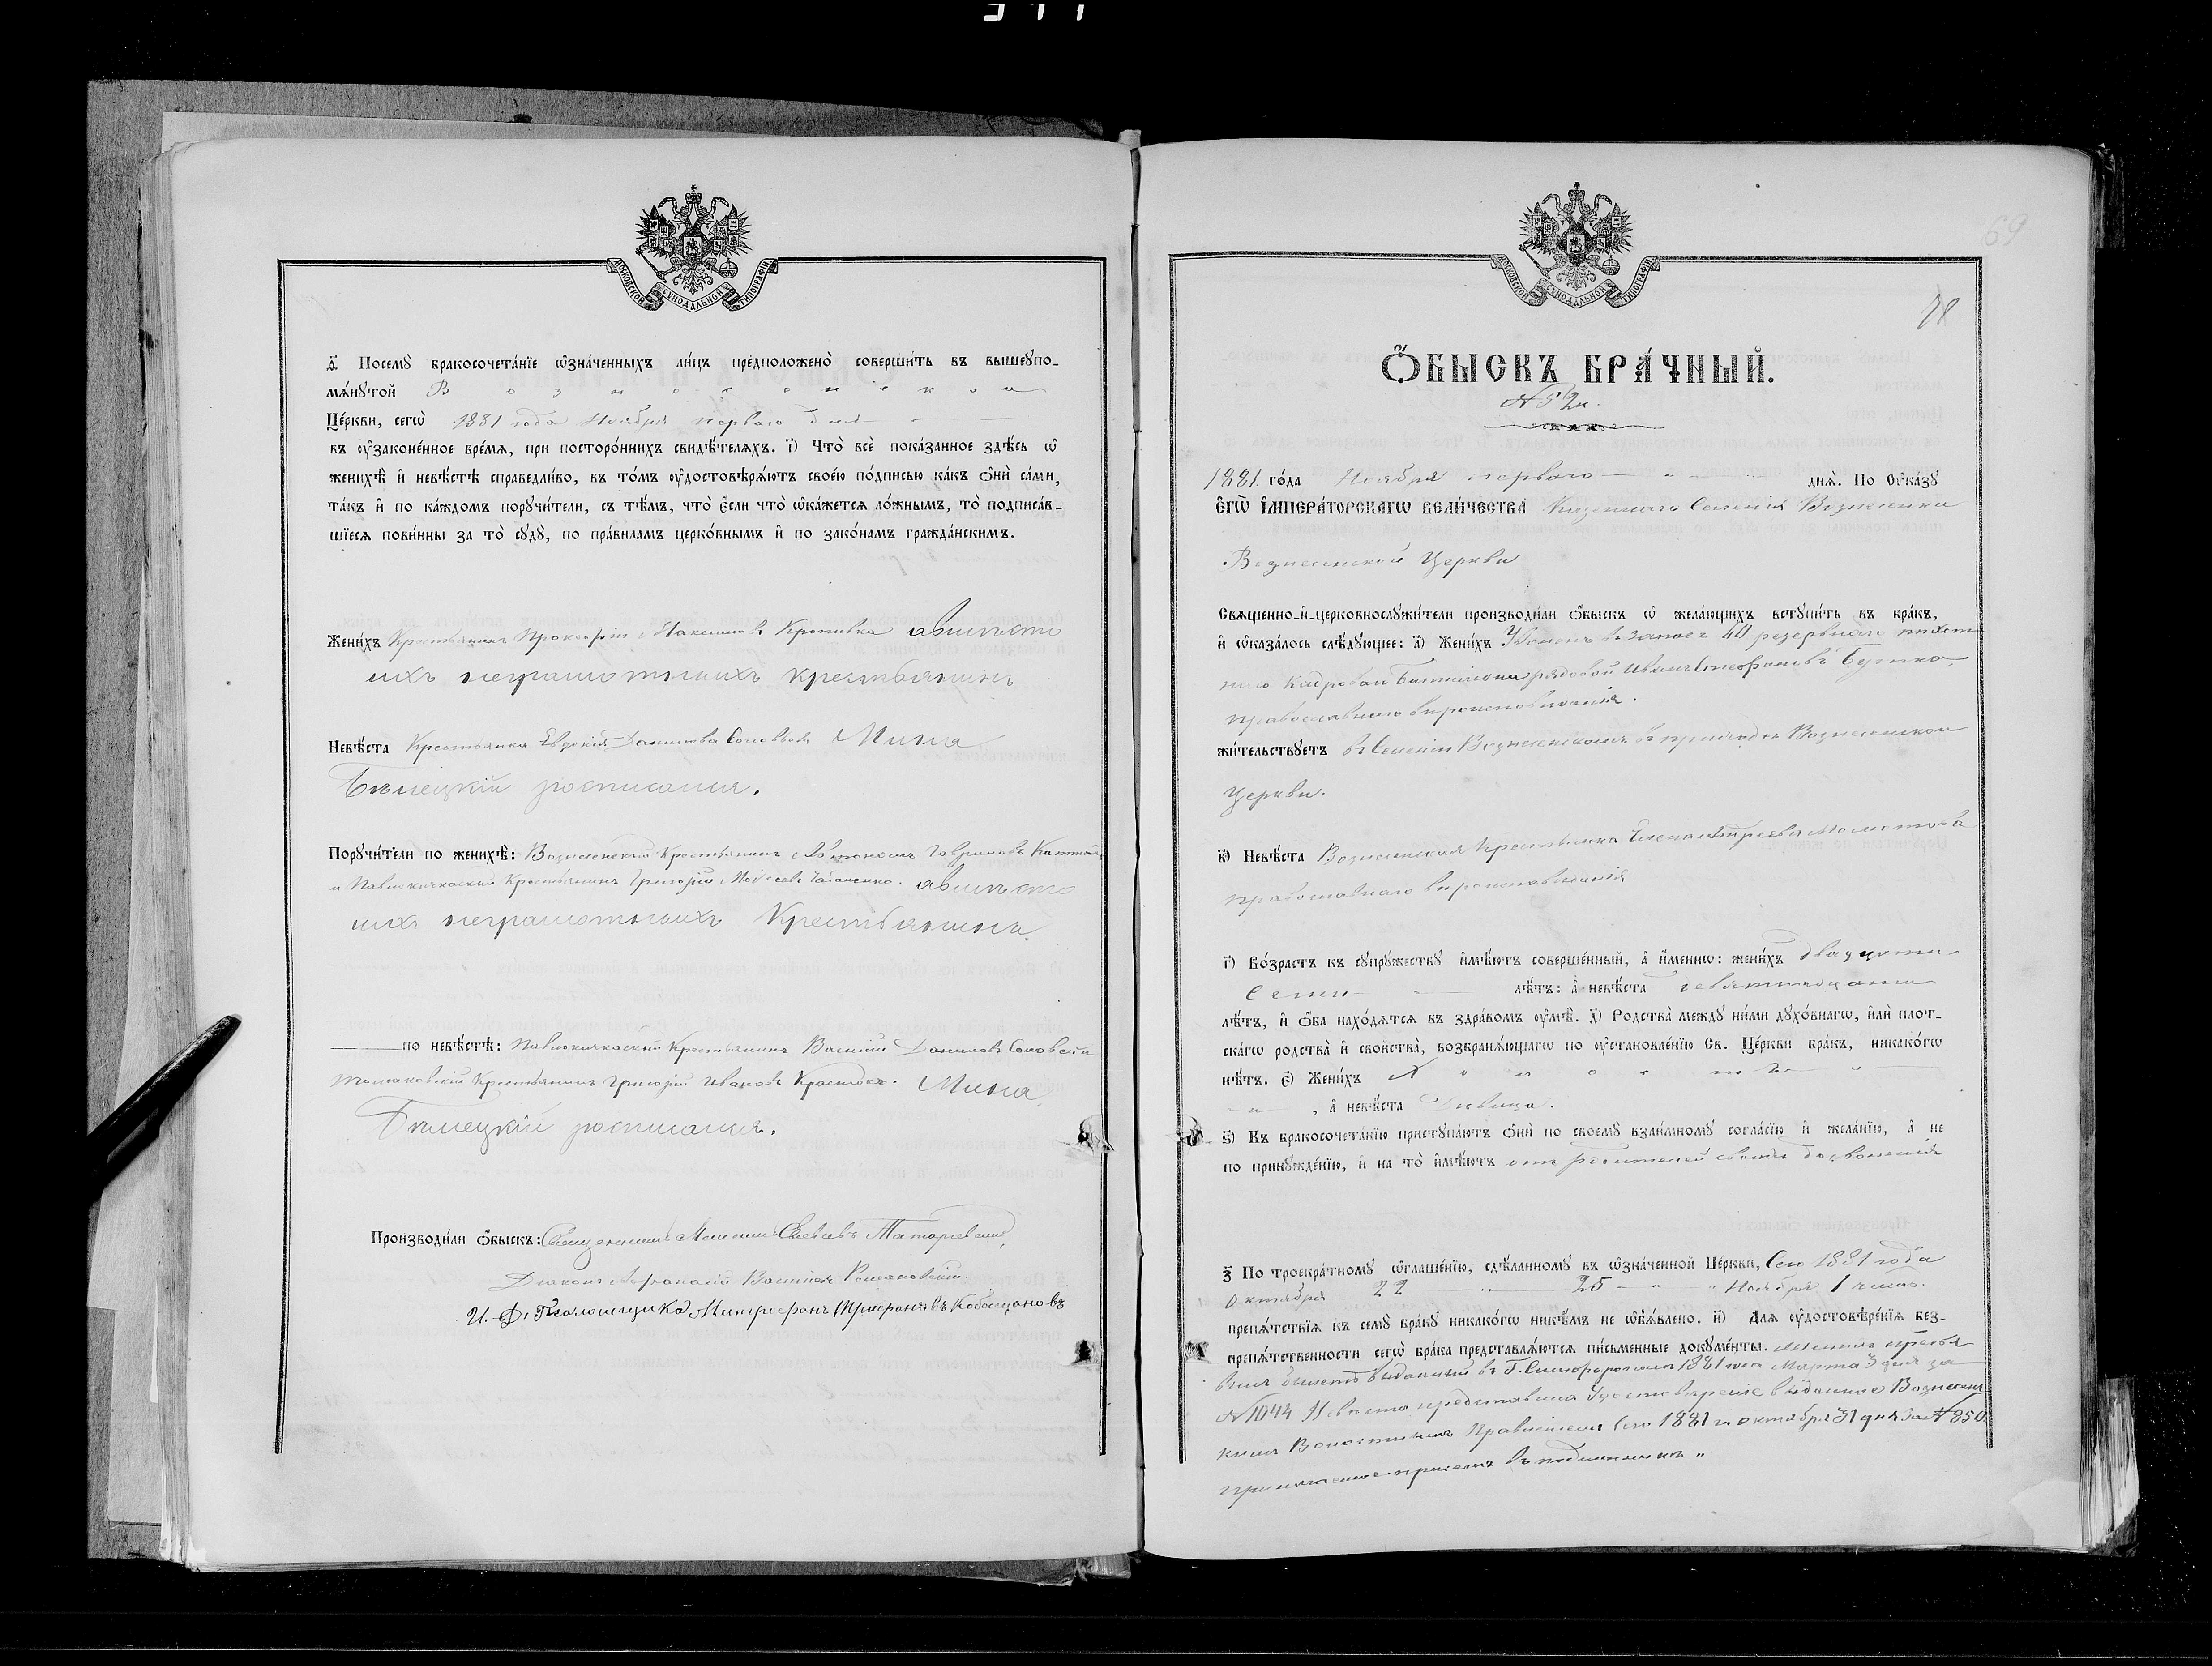 МОСКОВСКОЙ СѴНОДАЛЬНОЙ ТИПОГРАФІИ
ѳ҃) Посемꙋ̀ бракосочета́нїе ѡ҆зна́ченныхъ ли́цъ предположено̀ соверши́ть въ вышеꙋпо-
мѧ́нꙋтой Вознесенской
Це́ркви, сегѡ̀ 1881 года Ноября перваго дня
въ ᲂу҆законе́нное вре́мѧ, при посторо́ннихъ свидѣ́телѧхъ. і҃) Что̀ всѐ пока́занное здѣ́сь ѡ҆
женихѣ̀ и҆ невѣ́стѣ справедли́во, въ то́мъ ᲂу҆достовѣрѧ́ютъ свое́ю по́дписью ка́къ ѻ҆нѝ са́ми,
та́къ и҆ по ка́ждомъ порꙋчи́тели, съ тѣ́мъ, что̀ є҆́сли что̀ ѡ҆ка́жетсѧ ло́жнымъ, то̀ подписа́в-
шїесѧ пови́нны за то̀ сꙋдꙋ̀, по пра́виламъ церко́внымъ и҆ по зако́намъ гражда́нскимъ.
Жени́хъ Крестьянинъ Прокофій Максимовъ Кропивка а вместо
ихъ неграмотныхъ крестьянинъ
Невѣ́ста Крестьянка Евдокія Данилова Соловьева Мина
Бѣлецкій росписался.
Порꙋчи́тели по женихѣ̀: Вознесенскій Крестьянинъ Гавриловъ
и Павлокичкаскій Крестьянинъ Григорій Моѵсеевъ Чабаненко. а вместо
ихъ неграмотныхъ Крестьянинъ
по невѣ́стѣ: Павлокичкаскій Крестьянинъ Василій Даниловъ Соловей и
Томаковскій Крестьянинъ Григорій Ивановъ Мина
Бѣлецкій росписался.
Производи́ли ѻ҆́быскъ: Священникъ
Діаконъ Василій Романовскій
И. Д. Псаломщика Митрофанъ
МОСКОВСКОЙ СѴНОДАЛЬНОЙ ТИПОГРАФІИ
69
71
Ѻ҆́БЫСКЪ БРА́ЧНЫЙ.
№ 52й.
1881. го́да Ноября перваго днѧ̀. По Оу҆ка́зꙋ
Є҆ГѠ̀ І҆МПЕРА́ТОРСКАГѠ ВЕЛИ́ЧЕСТВА Казеннаго Селенія Вознесенки
Вознесенской Церкви
Свѧще́нно-и҆-церковнослꙋжи́тели производи́ли ѻ҆́быскъ ѡ҆ жела́ющихъ встꙋпи́ть въ бра́къ,
и҆ ѡ҆каза́лось слѣ́дꙋющее: а҃) Жени́хъ Уволенъ въ запасъ 60 резервнаго пѣхот
наго Кадроваго Баталіона рядовой Иванъ Стефановъ Бутко,
православнаго вѣроисповѣданія.
жи́тельствꙋетъ въ Селеніи Вознесенскомъ въ приходѣ Вознесенской
Церкви.
в҃) Невѣ́ста Вознесенская Крестьянка Елена
православнаго вѣроисповѣданія
г҃) Во́зрастъ къ сꙋпрꙋ́жествꙋ и҆мѣ́ютъ соверше́нный, а҆ и҆́меннѡ: жени́хъ двадцати
семи лѣ́тъ: а҆ невѣ́ста девятнадцати
лѣ́тъ, и҆ ѻ҆́ба нахо́дѧтсѧ въ здра́вомъ ᲂу҆мѣ̀. д҃) Родства̀ междꙋ ни́ми дꙋхо́внагѡ, и҆лѝ плот-
ска́гѡ родства̀ и҆ сво́йства̀, возбранѧ́ющагѡ по ᲂу҆становле́нїю Св. Це́ркви бра́къ, никако́гѡ
нѣ́тъ. є҃) Жени́хъ Холостъ
, а҆ невѣ́ста Дѣвица.
ѕ҃) Къ бракосочета́нїю пристꙋпа́ютъ ѻ҆нѝ по своемꙋ̀ взаи́мномꙋ согла́сїю и҆ жела́нїю, а҆ не
по принꙋжде́нїю, и҆ на то̀ и҆мѣ́ютъ отъ родителей своихъ дозволенія
з҃) По троекра́тномꙋ ѡ҆глаше́нїю, сдѣ́ланномꙋ въ ѡ҆зна́ченной Це́ркви, Сего 1881 года
Октября 22 25 Ноября 1 чиселъ.
препѧ́тствїѧ къ семꙋ̀ бра́кꙋ никако́гѡ никѣ́мъ не ѡ҆б̾ѧ́влено. и҃) Длѧ ᲂу҆достовѣре́нїѧ без-
препѧ́тственности сегѡ̀ бра́ка представлѧ́ютсѧ пи́сьменные докꙋме́нты. Женихъ предъя
вилъ билетъ выданный въ Г. Симферополѣ 1881 года Марта 3 дня за
№ 1044 Невѣста представила Удостовѣреніе выданное Вознесен
скимъ Волостнымъ Правленіемъ Сего 1881 г. Октября 31 дня за № 850